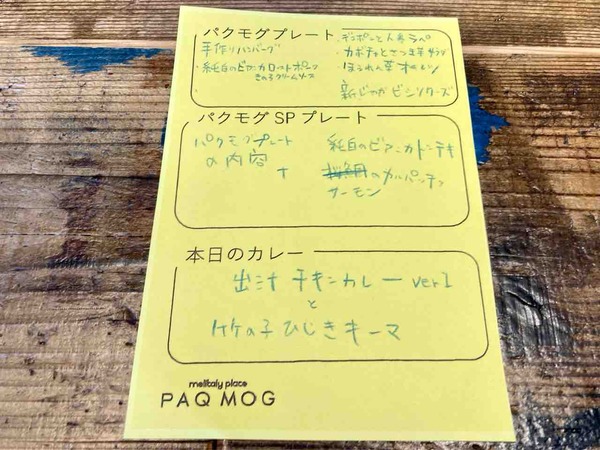 パクモグプレート
手作りハンバーグ
・純白のビアンカローストポーク
きのこクリームソース
・チンゲン
・カボチャとさつま芋サラダ
・ほうれん草オムレツ
新じゃが ビシソワーズ
パクモグ SP プレート
パクモグプレート
の内容
+
純白のビアンカトンテキ
のカルパッチョ
サーモン
本日のカレー
出汁 チキンカレー ver1
と
竹の子ひじきキーマ
melitaly place
PAQ MOG